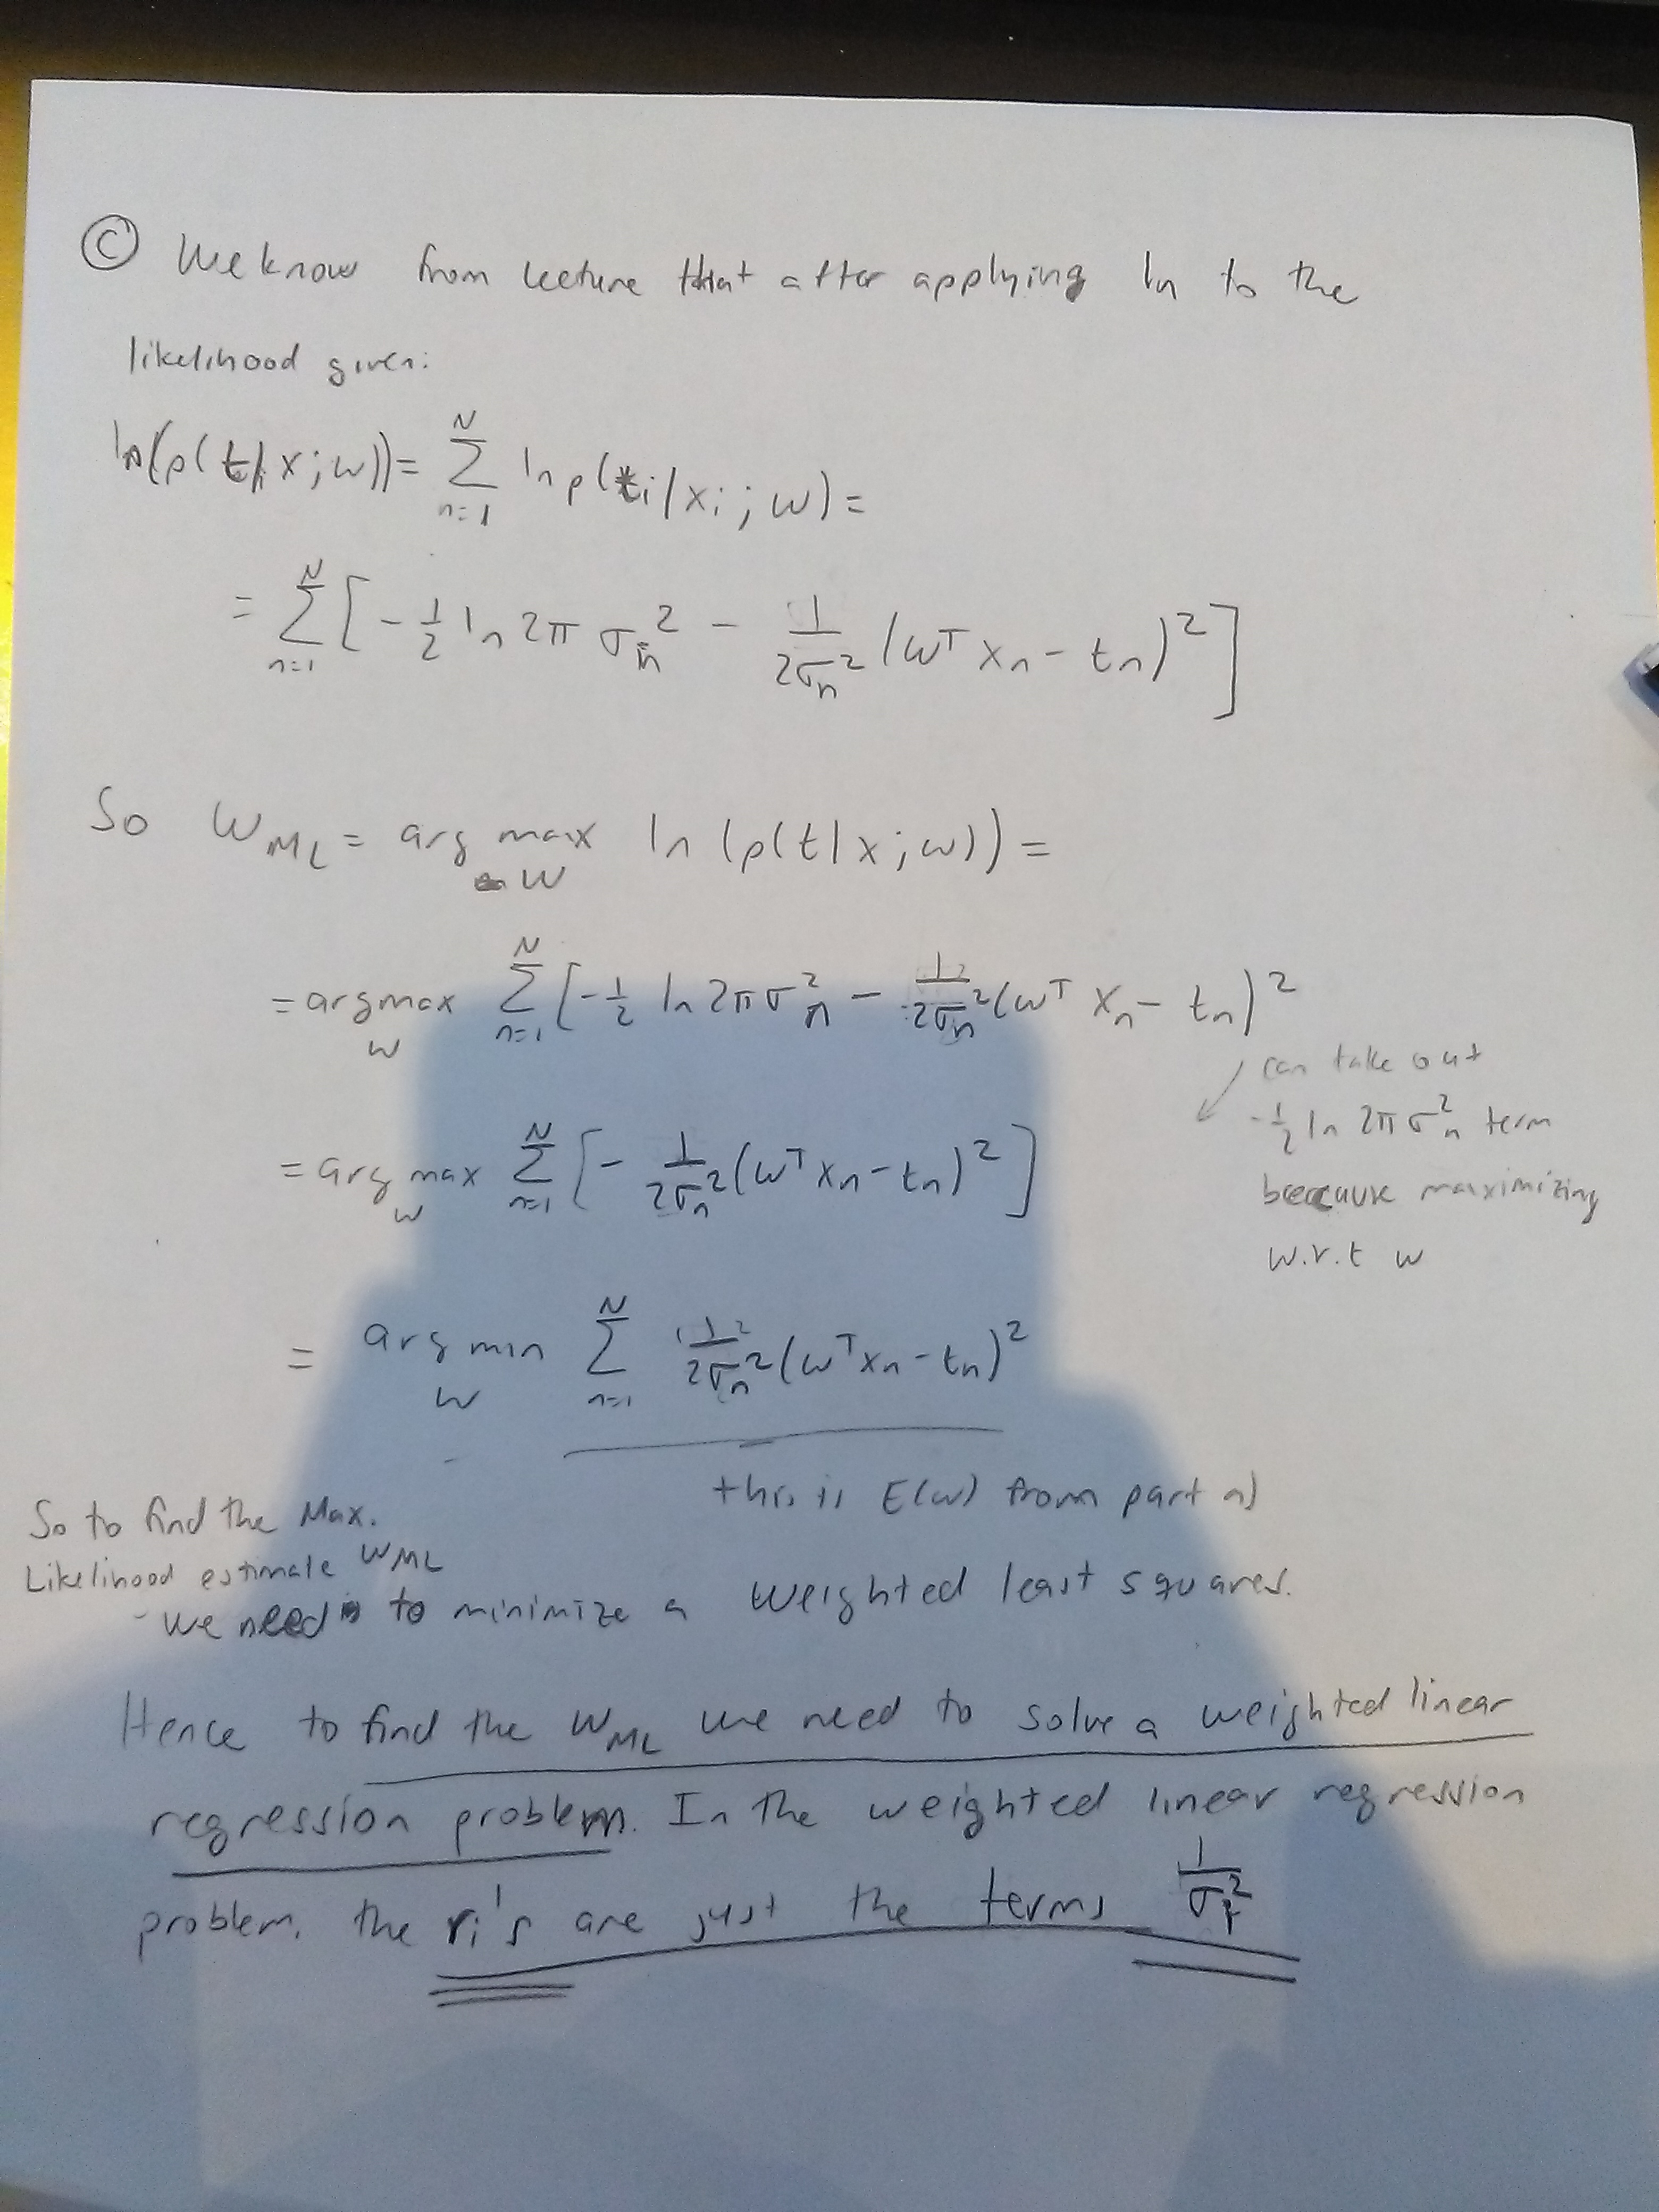 Ⓒ We know from lecture that after applying ln to the
likelihood given:
ln(p(t|x;w)) = Σ_{n=1}^{N} ln p(t_i|x_i;w) =
= Σ_{n=1}^{N} [-1/2 ln 2π σ_n^2 - 1/(2σ_n^2) (w^T x_n - t_n)^2]
So W_ML = arg max_w ln (p(t|x;w)) =
= argmax_w Σ_{n=1}^{N} [-1/2 ln 2π σ_n^2 - 1/(2σ_n^2) (w^T x_n - t_n)^2
can take out
-1/2 ln 2π σ_n^2 term
because maximizing
w.r.t w
= arg max_w Σ_{n=1}^{N} [- 1/(2σ_n^2) (w^T x_n - t_n)^2]
= arg min_w Σ_{n=1}^{N} 1/(2σ_n^2) (w^T x_n - t_n)^2
this is E(w) from part a)
So to find the Max.
Likelihood estimate W_ML
we need to minimize a weighted least squares.
Hence to find the W_ML we need to solve a weighted linear
regression problem. In the weighted linear regression
problem, the r_i's are just the terms 1/σ_i^2